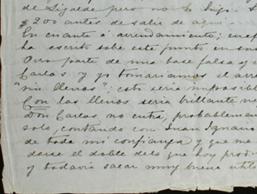 de Sigalde pero no lo digo. S
$200 antes de salir de aquí.
En cuanto á arrendamiento; en ef
ha escrito sobre este punto en son
Otro parte de una base falsa y
Carlos y yo tomaríamos el arre
"sin llenos"; esto sería imposible
Con las llenos sería brillante no
Don Carlos, no entra, probablemen
solo, contando con Juan Ignacio
de toda mi confianza y que me
darse el doble de lo que hoy prod
y todavía sacar muy buena utili